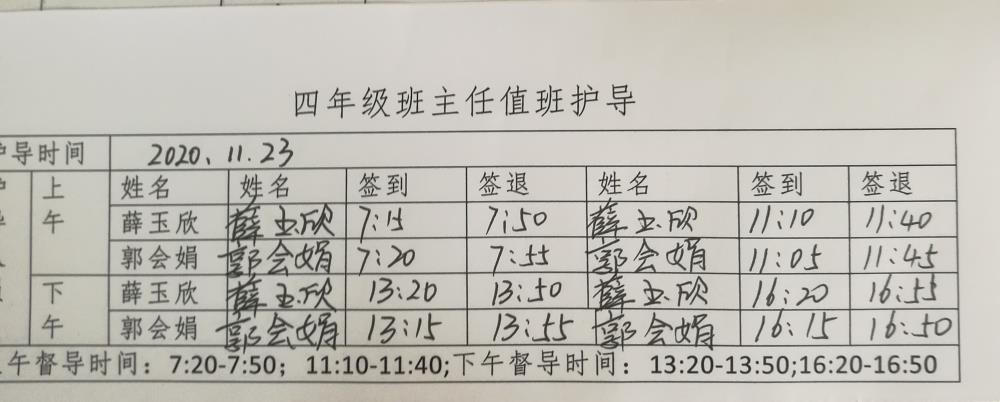 四年级班主任值班护导
护导时间 2020.11.23
护 上 姓名 姓名 签到 签退 姓名 签到 签退
导 午 薛玉欣 薛玉欣 7:15 7:50 薛玉欣 11:10 11:40
郭会娟 郭会娟 7:20 7:55 郭会娟 11:05 11:45
下 薛玉欣 薛玉欣 13:20 13:50 薛玉欣 16:20 16:55
午 郭会娟 郭会娟 13:15 13:55 郭会娟 16:15 16:50
午督导时间：7:20-7:50；11:10-11:40;下午督导时间：13:20-13:50;16:20-16:50